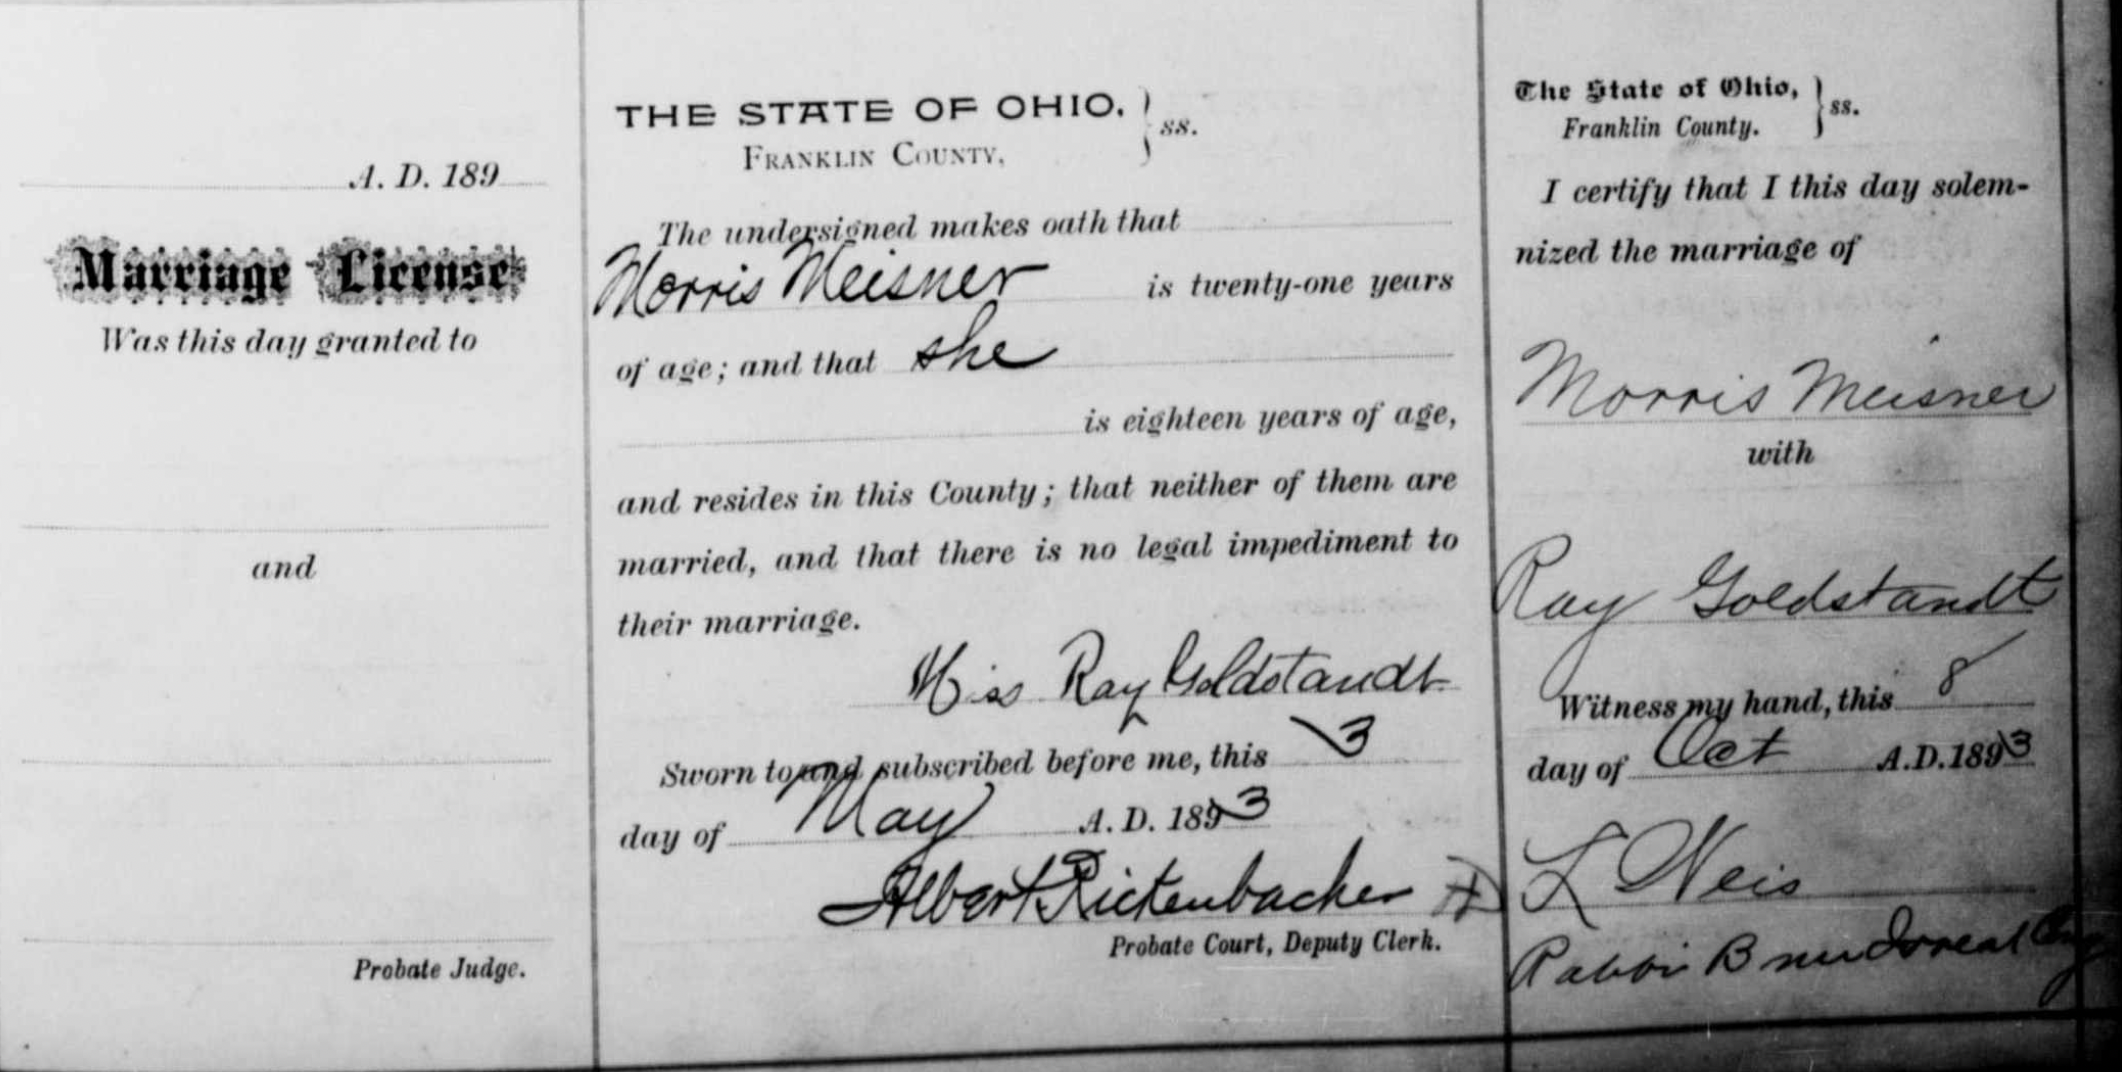 A. D. 189
Marriage License
Was this day granted to
and
Probate Judge.
THE STATE OF OHIO, } ss.
FRANKLIN COUNTY,
The undersigned makes oath that
Morris Meisner is twenty-one years
of age; and that she
is eighteen years of age,
and resides in this County; that neither of them are
married, and that there is no legal impediment to
their marriage.
Miss Ray Goldstandt
Sworn to and subscribed before me, this 3
day of May A. D. 1893
Albert Rickenbacher
Probate Court, Deputy Clerk.
The State of Ohio, } ss.
Franklin County.
I certify that I this day solem-
nized the marriage of
Morris Meisner
with
Ray Goldstandt
Witness my hand, this 8
day of Oct A.D. 1893
L Weis
Rabbi Bnai Isreal Cong